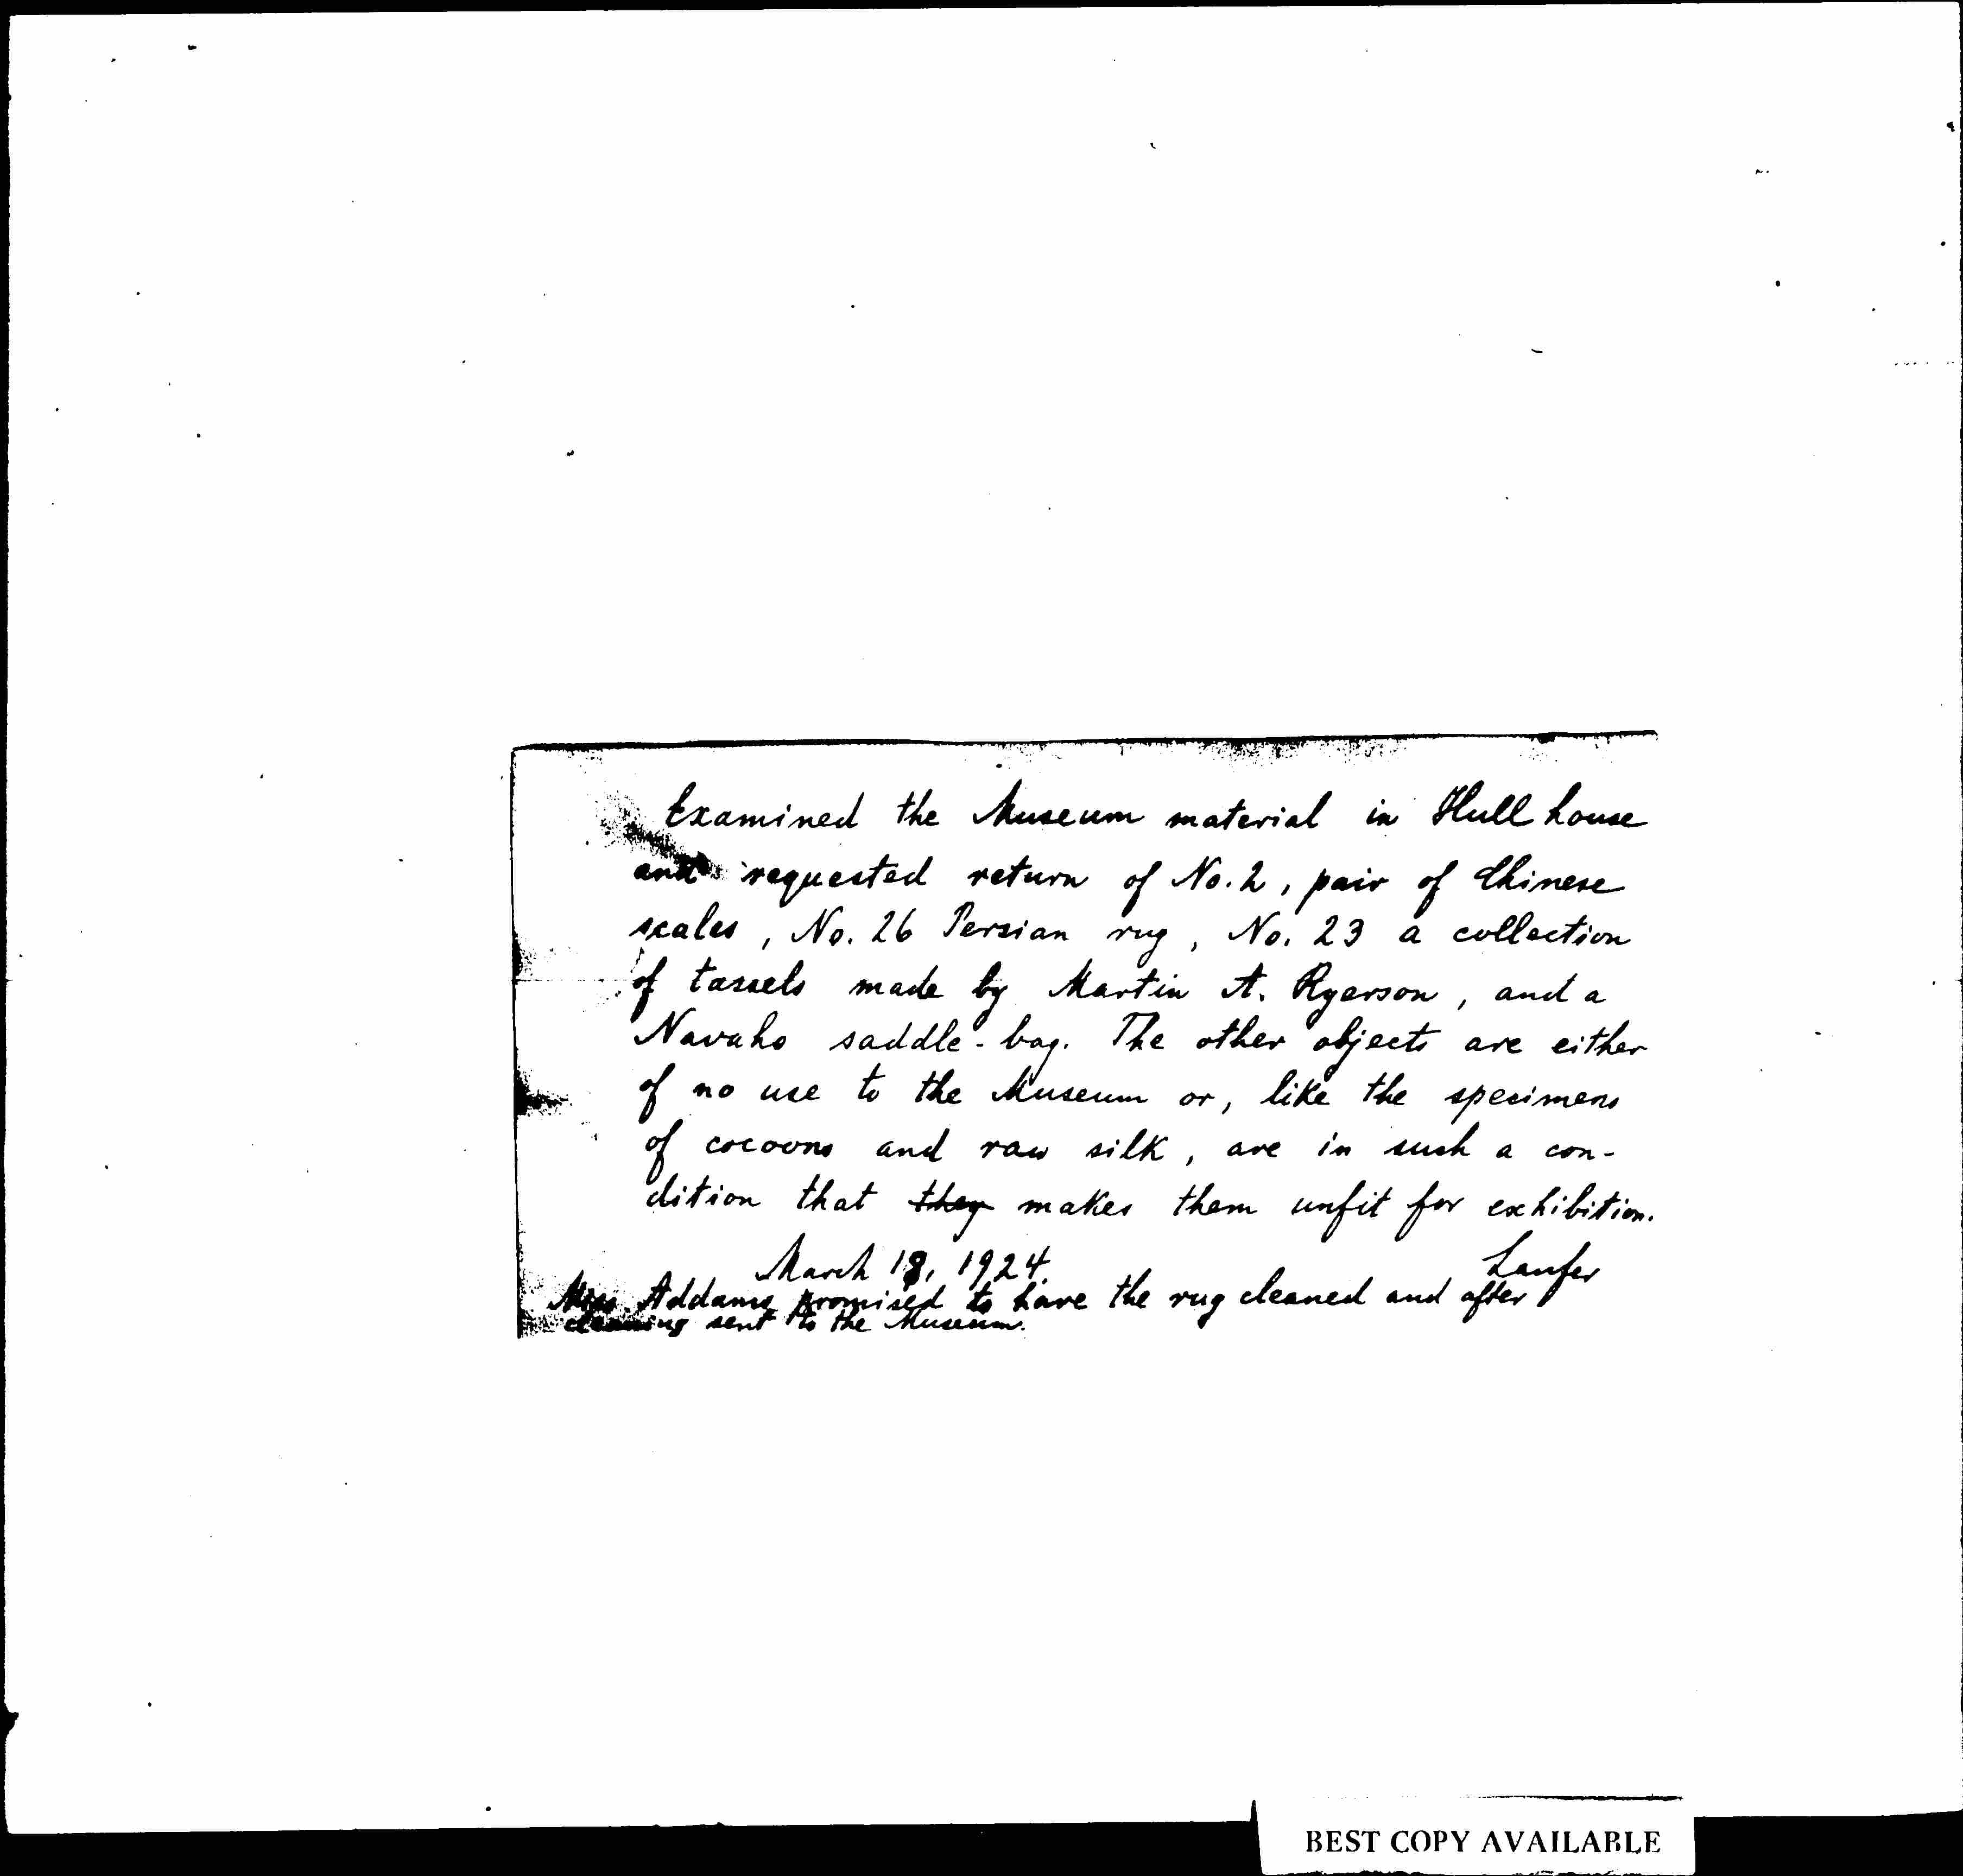 Examined the Museum material in Hull house
and requested return of No. 2, pair of Chinese
scales, No. 26 Persian rug, No. 23 a collection
of tassels made by Martin A. Ryerson, and a
Navaho saddle-bag. The other objects are either
of no use to the Museum or, like the specimens
of cocoons and raw silk, are in such a con-
dition that they makes them unfit for exhibition.
March 18, 1924. Laufer
Miss Addams promised to have the rug cleaned and after
cleaning sent to the Museum.
BEST COPY AVAILABLE